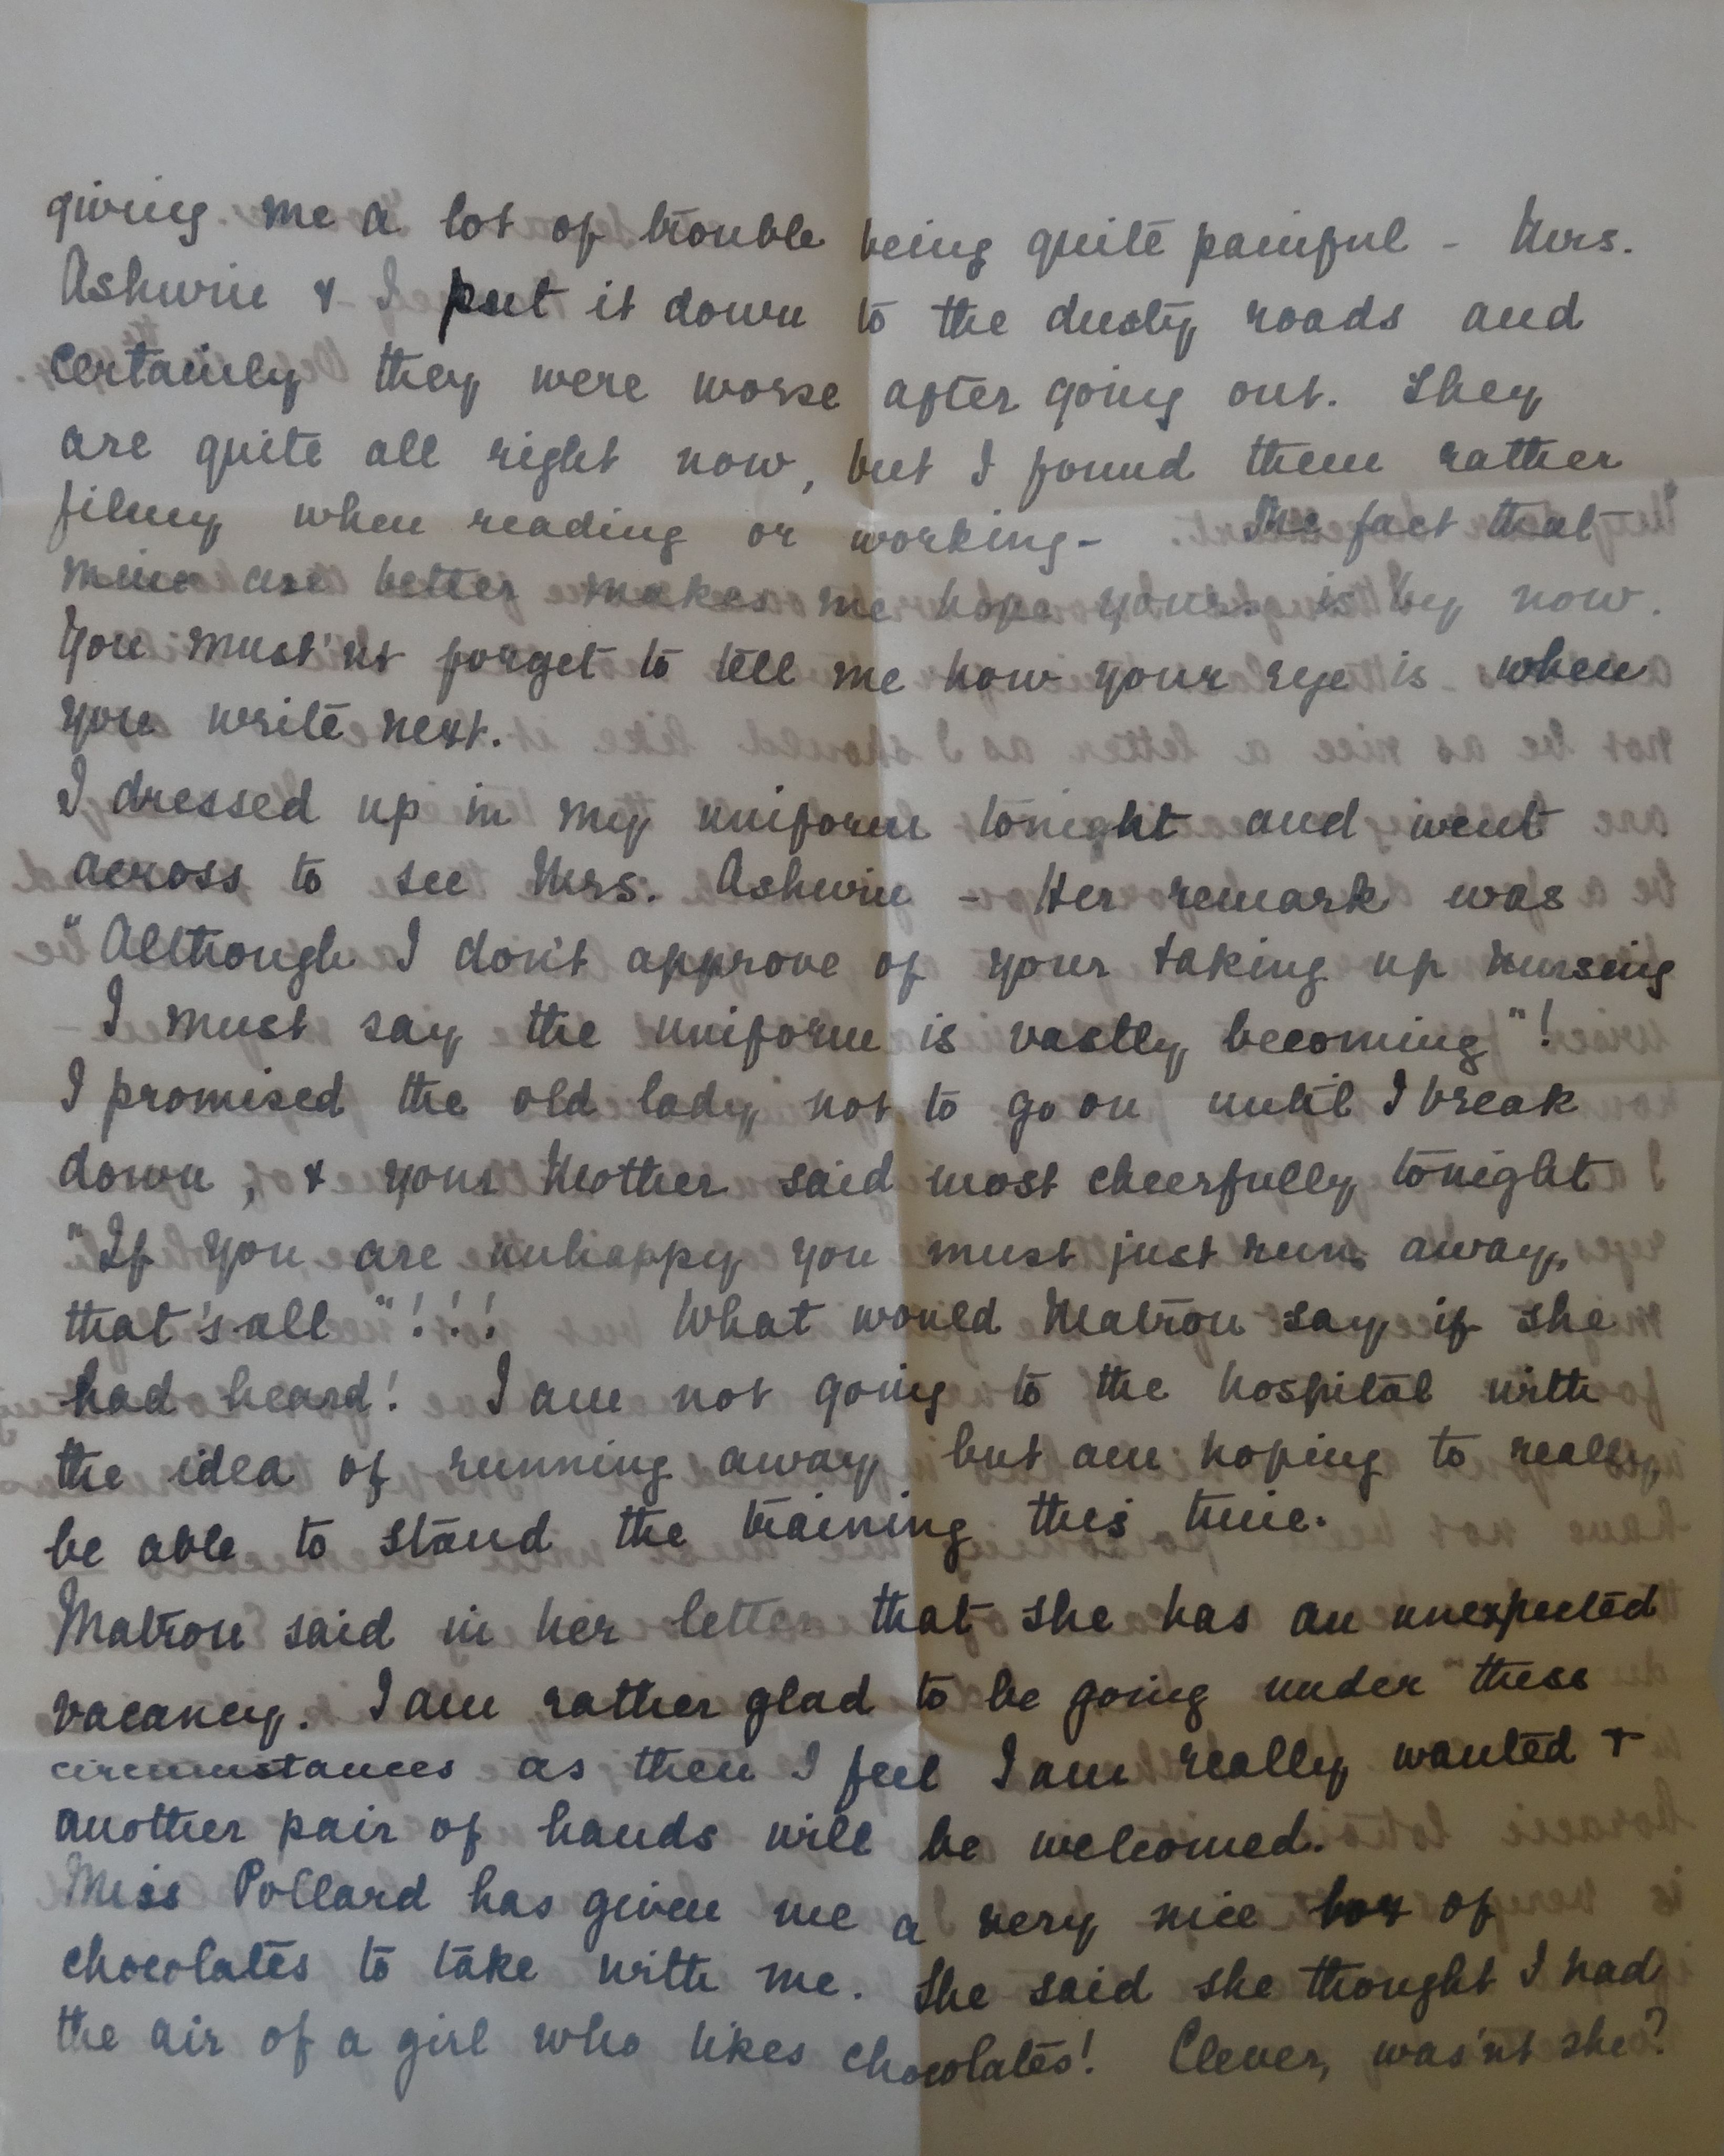 giving me a lot of trouble being quite painful - Mrs.
Ashwin & I put it down to the dusty roads and
certainly they were worse after going out. They
are quite all right now, but I found them rather
filmy when reading or working - The fact that
mine are better makes me hope yours is by now.
You must'nt forget to tell me how your eye is when
you write next.
I dressed up in my uniform tonight and went
across to see Mrs. Ashwin - Her remark was
"Although I don't approve of your taking up nursing
I must say the uniform is vastly becoming"!
I promised the old lady not to go on until I break
down, & your Mother said most cheerfully tonight
"If you are unhappy you must just run away,
that's all"!!! What would Matron say if she
had heard! I am not going to the hospital with
the idea of running away but am hoping to really
be able to stand the training this time.
Matron said in her letter that she has an unexpected
vacancy. I am rather glad to be going under these
circumstances as then I feel I am really wanted &
another pair of hands will be welcomed.
Miss Pollard has given me a very nice box of
chocolates to take with me. She said she thought I had
the air of a girl who likes chocolates! Clever, was'nt she?